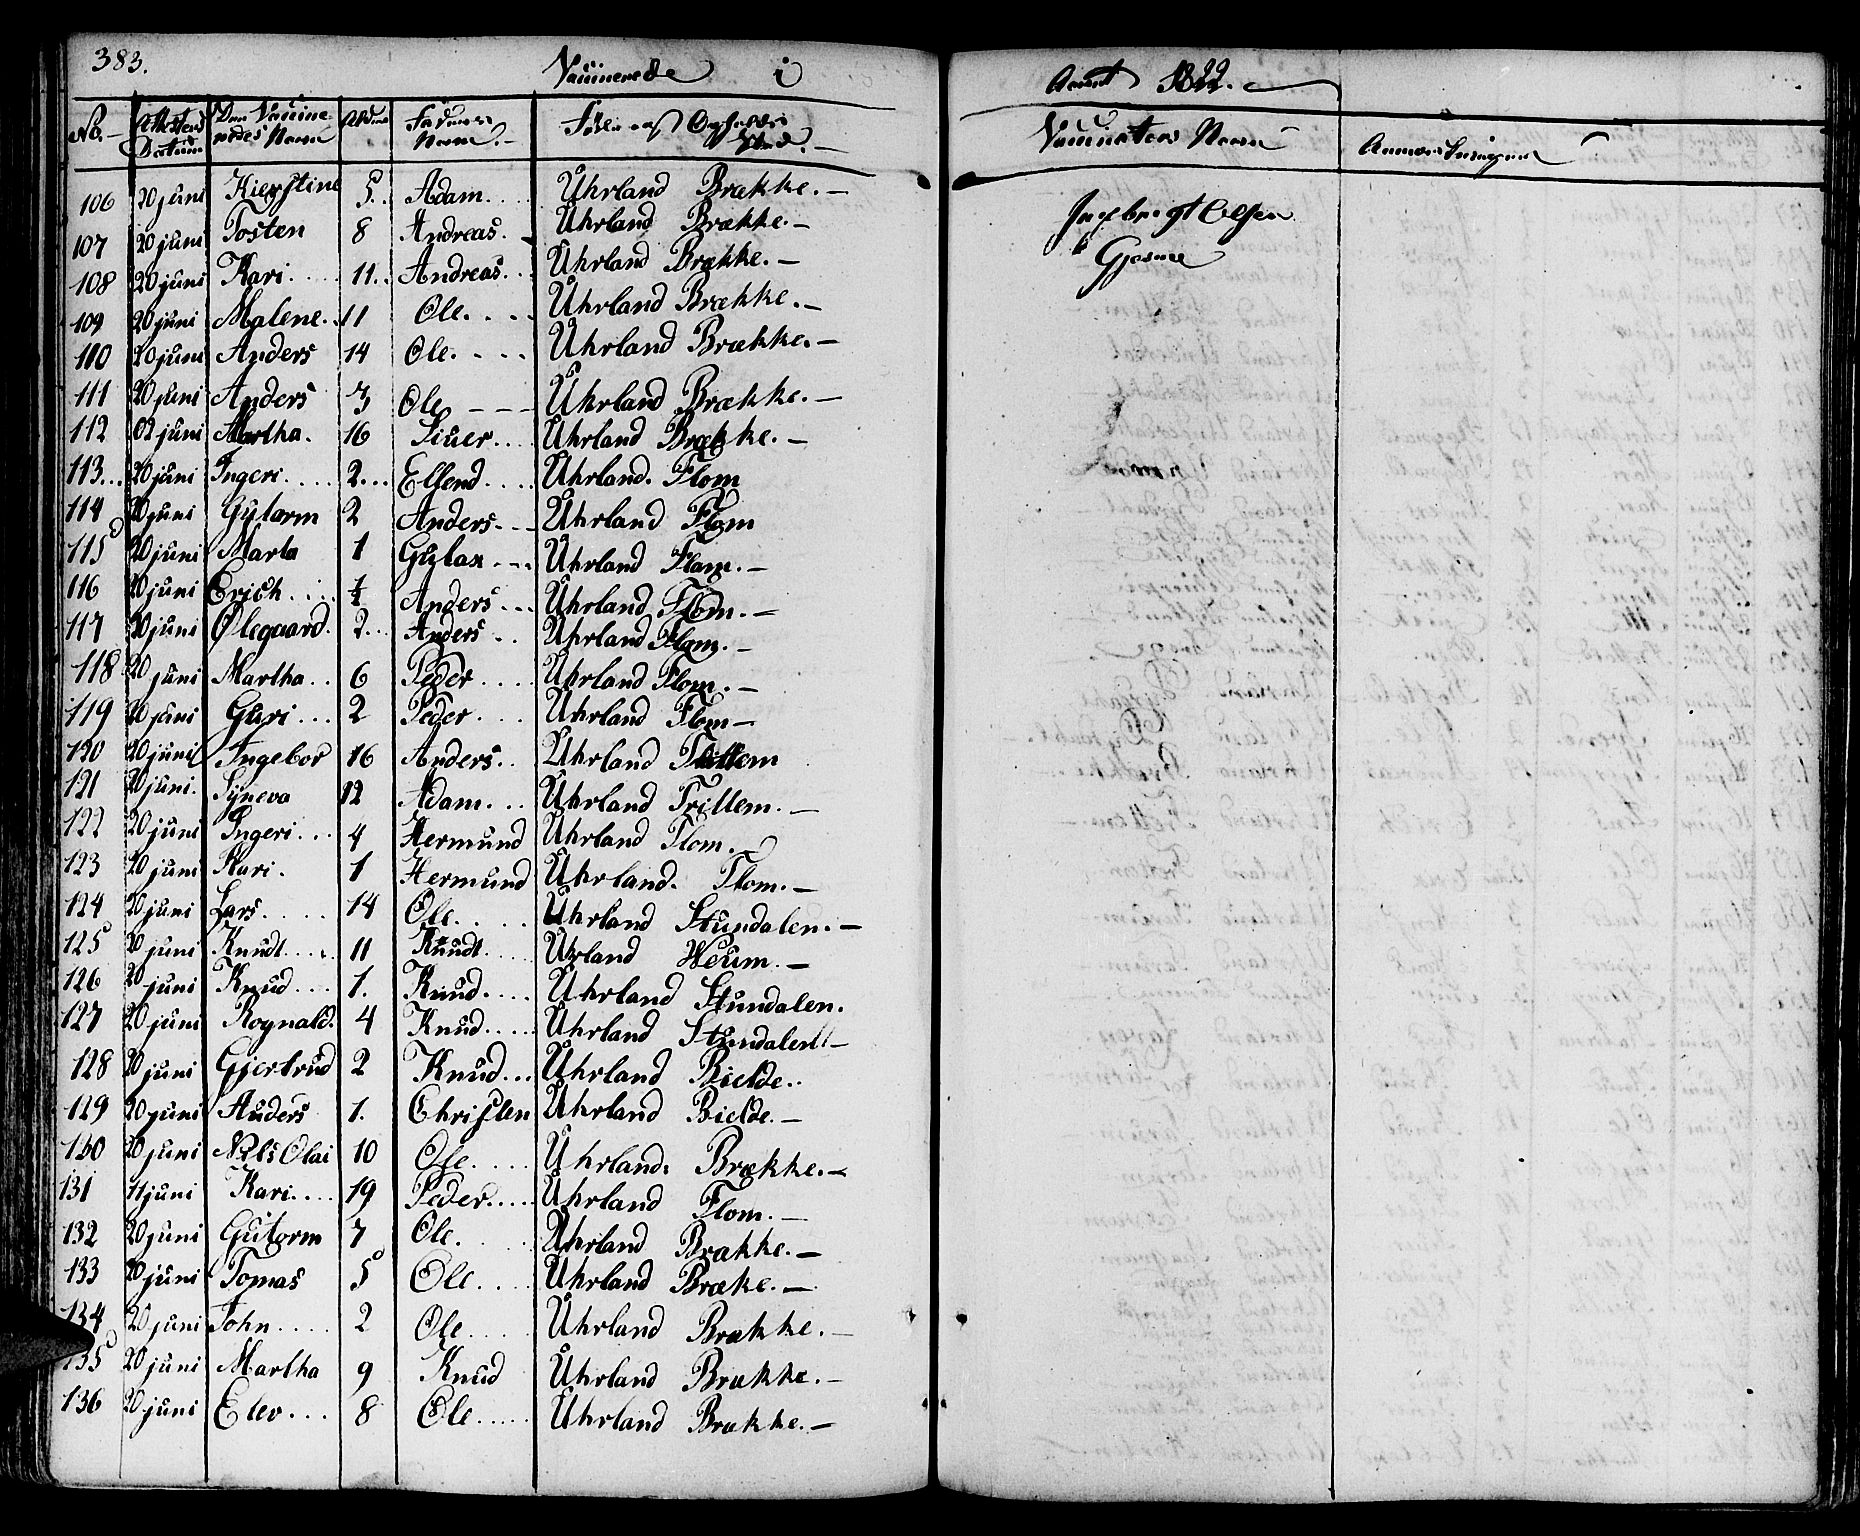 383.
Vaccinerede i
No. Attestens Datum Den Vaccineredes Navn Alder Faderens Navn. Føde og Opholds Sted.
106 20 juni Kierstine 5. Adam Uhrland Brække.
107 20 juni Tosten 8 Andreas. Uhrland Brække.
108 20 juni Kari 11 Andreas. Uhrland Brække.
109 20 juni Malene 11 Ole. Uhrland Brække.
110 20 juni Anders 14 Ole. Uhrland Brække.
111 20 juni Anders 3 Ole Uhrland Brække.
112 02 juni Martha. 16 Siuer Uhrland Brække.
113 20 juni Ingeri 2 Ellend Uhrland. Flom
114 20 juni Gutorm 2 Anders Uhrland Flom
115 20 juni Marta 1 Uhrland Flam.
116 20 juni Erich ½ Anders Uhrland Flom.
117 20 juni Olegaard 2 Anders Uhrland Flom.
118 20 juni Martha 6 Peder Uhrland Flom.
119 20 juni Guri 2 Peder Uhrland Flom
120 20 juni Ingebor 16 Anders Uhrland
121 20 juni. Syneva 12 Adam Uhrland Trillem.
122 20 juni Ingeri 4 Hermund Uhrland Flom.
123 20 juni Kari. 1 Hermund Uhrland. Flom.
124 20 juni Lars 14 Ole Uhrland Stundalen.
125 20 juni Knudt 11 Knudt Uhrland
126 20 juni Knud 1. Knud Uhrland Stundalen.
127 20 juni Rognald. 4 Knud Uhrland Stundalen
128 20 juni Gjertrud 2 Knud Uhrland Bielde.
129 20 juni Anders 1. Christen Uhrland Bielde.
130 20 juni Nils Olai 10 Ole Uhrland. Brække.
131 11 juni Kari 19 Peder Uhrland Flom.
132 20 juni Gutorm 7 Ole. Uhrland Brække.
133 20 juni Tomas 5 Ole Uhrland Bræke.
134 20 juni John 2 Ole Uhrland Brække.
135 20 juni Martha 9 Knud Uhrland Brække.
136 20 juni Elev 8 Ole Uhrland Brække.
Aaret 1822.
Vaccinateurs Navn Anmærkninger
Ingebrigt Olsen
Gjesme